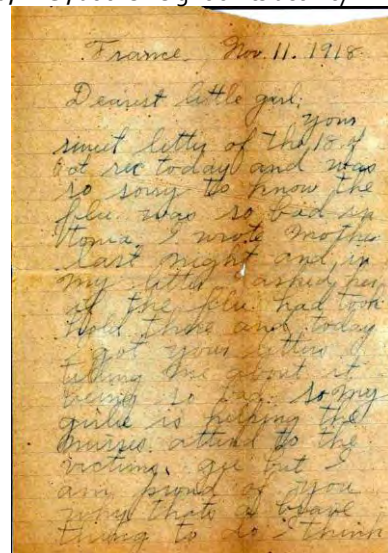 France, Nov. 11. 1918
Dearest little girl;
your
sweet letter of the 18 of
Oct rec today and was
so sorry to know the
flu was so bad in
Ionia. I wrote Mother
last night and in
my letter asked her
if the flu had took
hold there and today
I got your letter
telling me about it
being so bad. so my
girlie is helping the
nurses attend to the
victims. gee but I
am proud of you
why thats a brave
thing to do I think